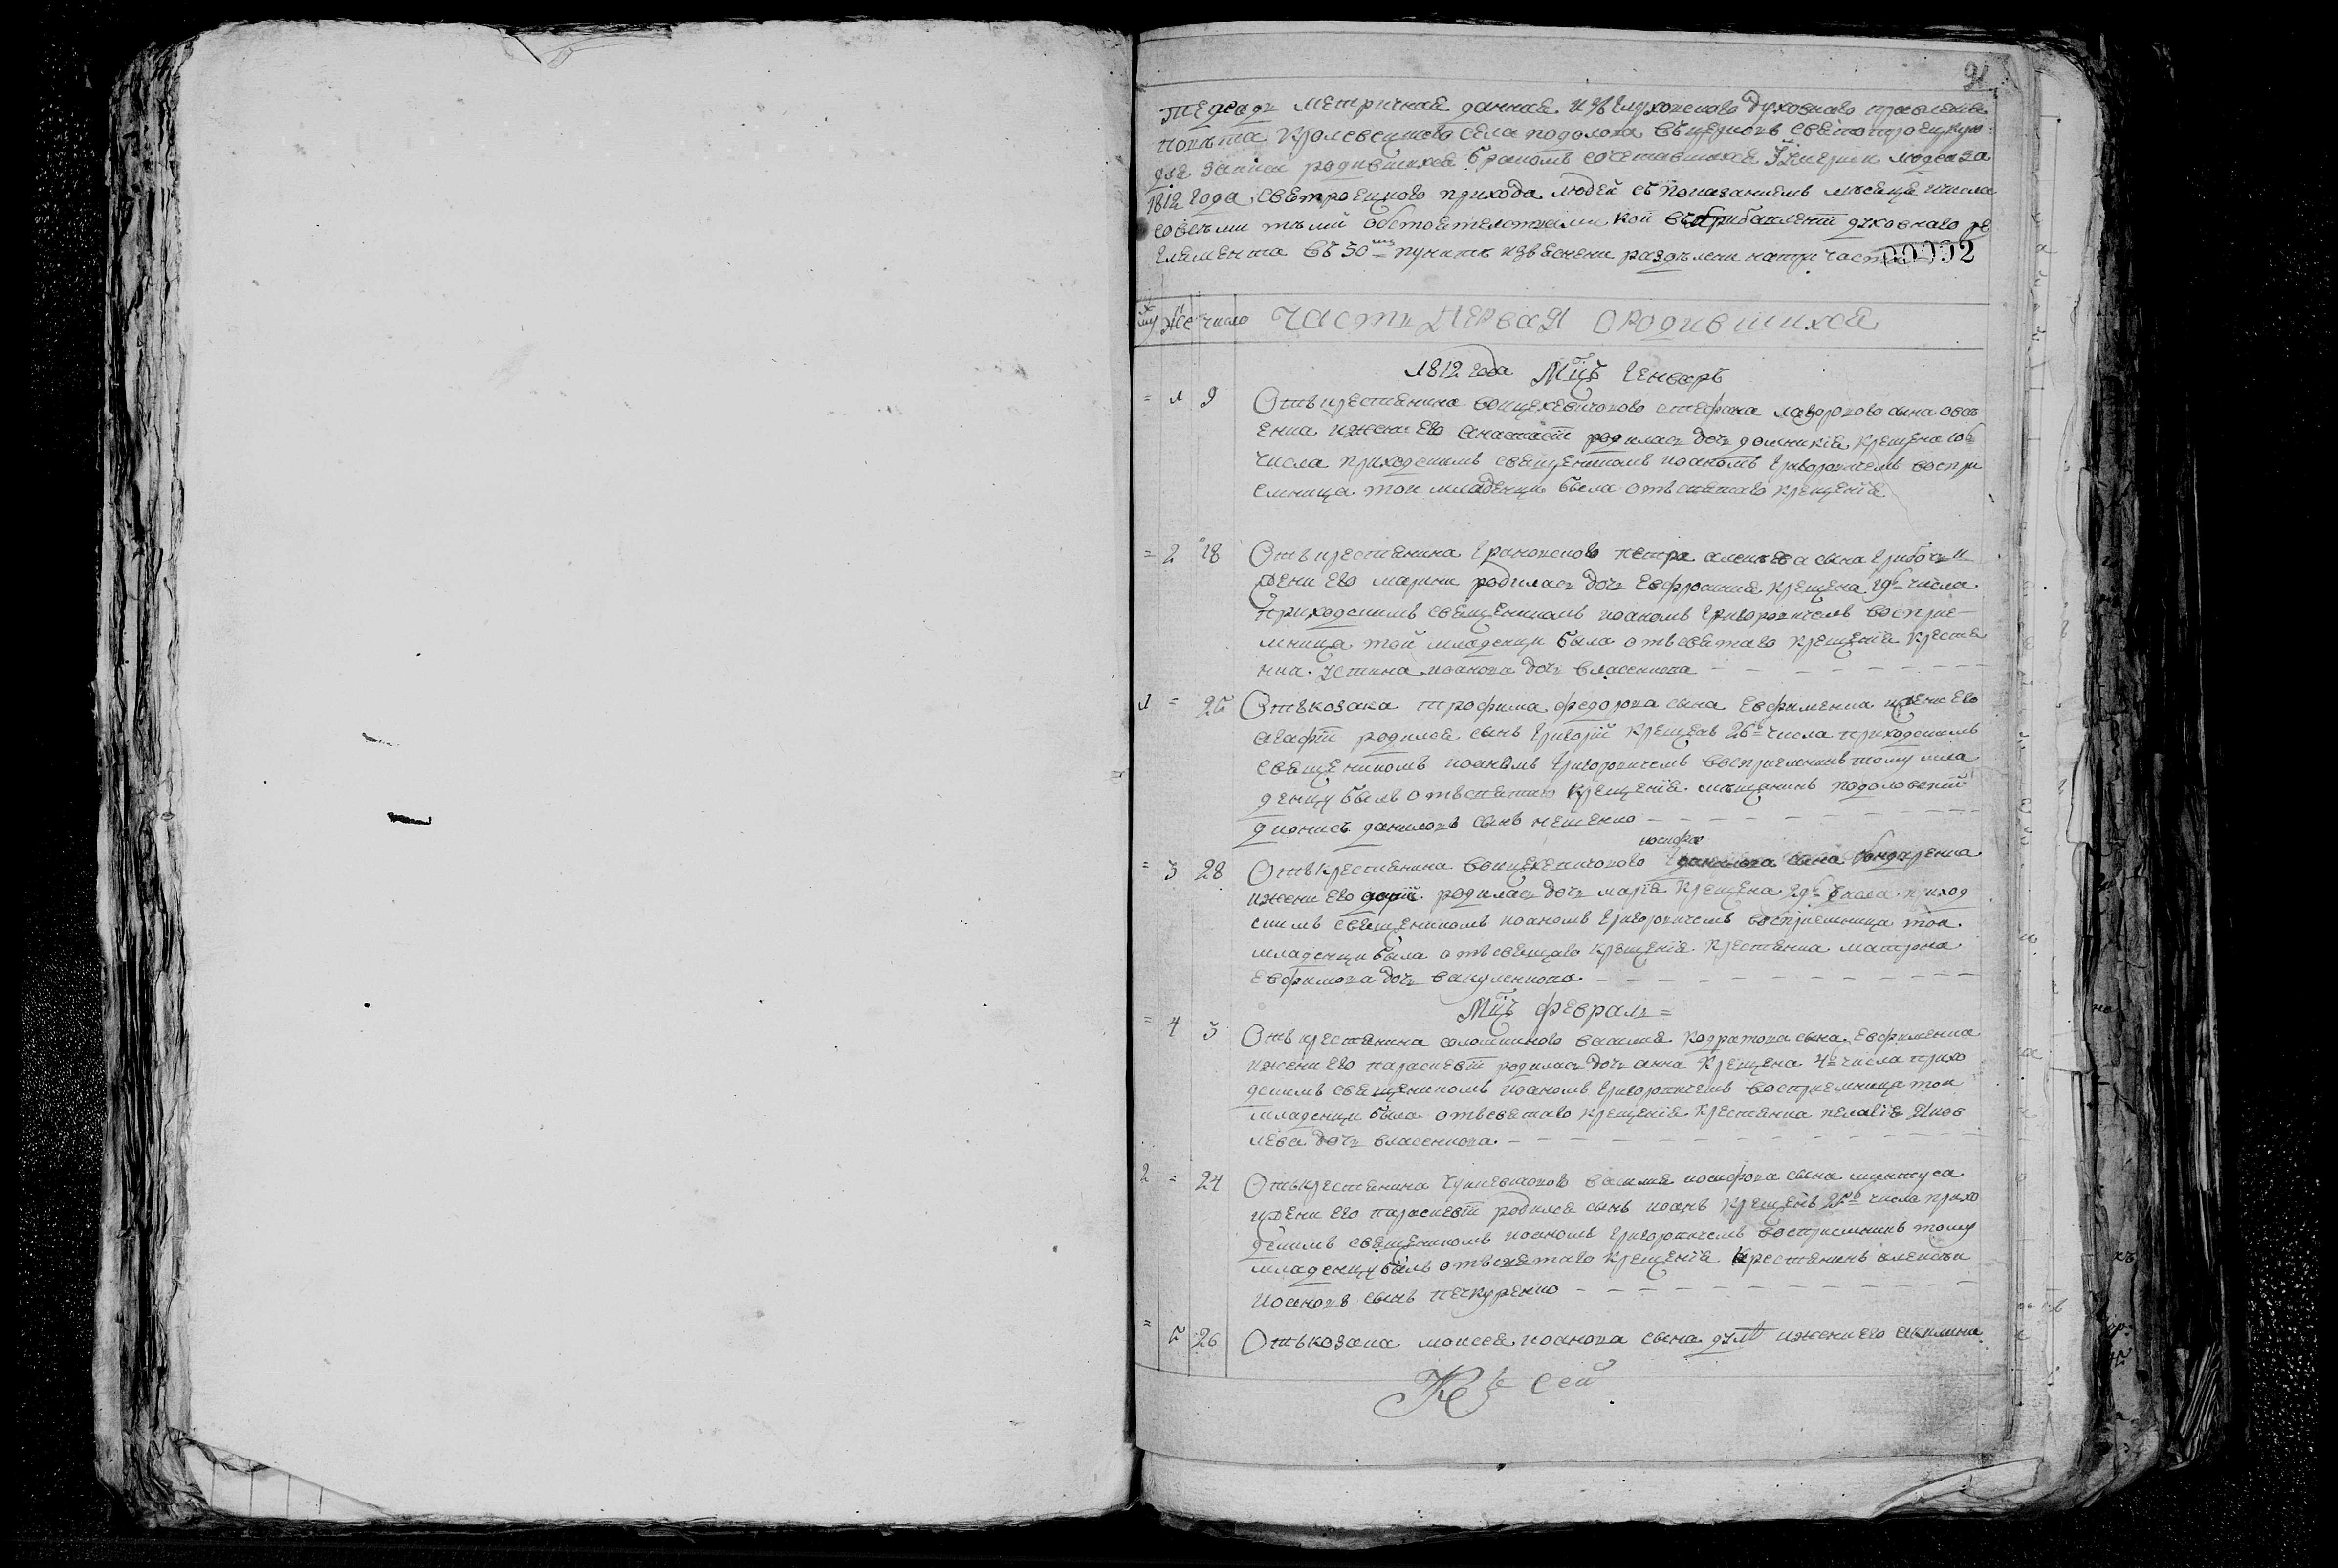 тетрадь метричная данная изъ глуховского духовного правления
повѣта кролевецкого села подолова въ церковь святотроецкую
для записи родившихся бракомъ сочетавшихся и умерших людей за
1812 года святроецкого прихода людей съ показаниемъ мѣсяца и числа
со всѣми тѣми обстоятелствами кои въ прибавлении духовнаго ре
гламента въ 30 пунктѣ изъяснени раздѣлени на три части
00002
му же число часть первая о родившихся
1812 года Мцъ Генваръ
= 1 9 Отъ крестянина воицеховичового стефана лаврового сына овсѣ
енка и жени его анастасіи родилась дочь домникія крещена 10 ѓ
числа приходскимъ священикомъ иоаномъ григоровичемъ воспри
емница тои младенци была отъ святаго крещенія
= 2 18 Отъ крестянина грановского петра алексѣева сына и
жени его марини родилась дочь евфросинія крещена 19 числа
приходскимъ священикомъ иоаномъ григоровичемъ восприе-
мница той младенци была отъ святаго крещенія крестя
нка устина иоанова дочь власенкова
1 = 25 Отъ козака трофима федорова сына евфименка и жени его
агафіи родился сынъ григорій крещенъ 26 числа приходскимъ
священикомъ иоаномъ григоровичемъ восприемникъ тому мла
денцу былъ отъ святаго крещенія мѣщанинъ подоловскій
дионисъ даниловъ сынъ нещенко
иосифа
= 3 28 Отъ крестянина воицеховичового данилова сина бондаренка
и жени его дарій родилась дочь марія крещена 29 числа приход
скимъ священикомъ иоаномъ григоровичемъ восприемница тои
младенци была отъ святаго крещенія крестянка матрона
евфимова дочь вакуленкова
Мцъ февраль =
= 4 3 Отъ крестянина василия кодратова сына евфименка
и жени его параскевіи родилась дочь анна крещена 4 числа прихо
дскимъ священикомъ иоаномъ григоровичемъ восприемница тои
младенци была отъ святаго крещенія крестянка пелагія яков
лева дочь власенкова
2 = 24 Отъ крестянина василия иосифова сына
и жени его параскевіи родился сынъ иоанъ крещенъ 25 числа прихо
дскимъ священикомъ иоаномъ григоровичемъ восприемникъ тому
младенцу былъ отъ святаго крещенія крестянинъ алексѣи
иоановъ сынъ печкуренко
= 5 26 Отъ козака моисея иоанова сына и жени его акилини
Къ сей